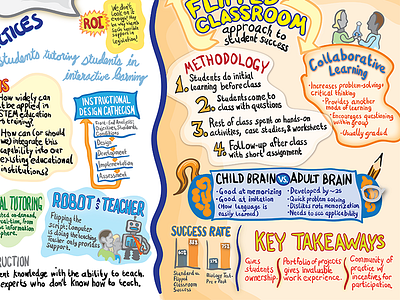 CTICES
ROI
We don't
look at it
enough! This
is why there's
such variable
support in
legislation!
students tutoring students in
interactive learning
How widely can
it be applied in
STEM education
+ training?
How can (or should
we) integrate this
capability into our
existing educational
institutions?
INSTRUCTIONAL
DESIGN CATHECISM
Front-End Analysis:
Objectives, Standards,
Conditions
Design
Development
Implementation
Assessment
TUTORING
ROBOT = TEACHER
Flipping the
script: Computer
is doing the teaching
tutor only provides
support.
RUCTION
ent knowledge with the ability to teach.
experts who don't know how to teach.
FLIPPED
CLASSROOM
approach to
student success
METHODOLOGY
1. Students do initial
learning before class
2. Students come to
class with questions
3. Rest of class spent on hands-on
activities, case studies, & worksheets
4. Follow-up after class
with short assignment
Collaborative
Learning
• Increases problem-solving +
critical thinking
• Provides another
mode of learning
• Encourages questioning
within group
• Usually graded
CHILD BRAIN VS ADULT BRAIN
- Good at memorizing
- Good at imitation
(How language is
easily learned)
- Developed by ~25
- Quick problem solving
- Dislikes rote memorization
- Needs to see applicability
SUCCESS RATE
Standard vs
Flipped
Classroom
Success
Biology Test-
Pre + Post
KEY TAKEAWAYS
Gives
students
ownership.
Portfolio of projects
gives invaluable
work experience.
Community of
practice w/
incentives for
participation.